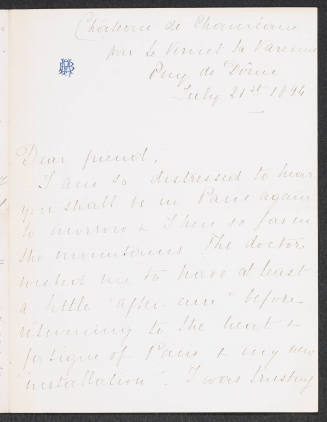 Château de Chanisane
par Le Vernet la Varenne
Puy de Dôme
July 21st 1894
Dear friend,
I am so distressed to hear
you shall be in Paris again
to morrow & I here so far in
the mountains. The doctor
wished me to have at least
a little "after cure" before
returning to the heat &
fatigue of Paris & my new
"installation". I was trusting